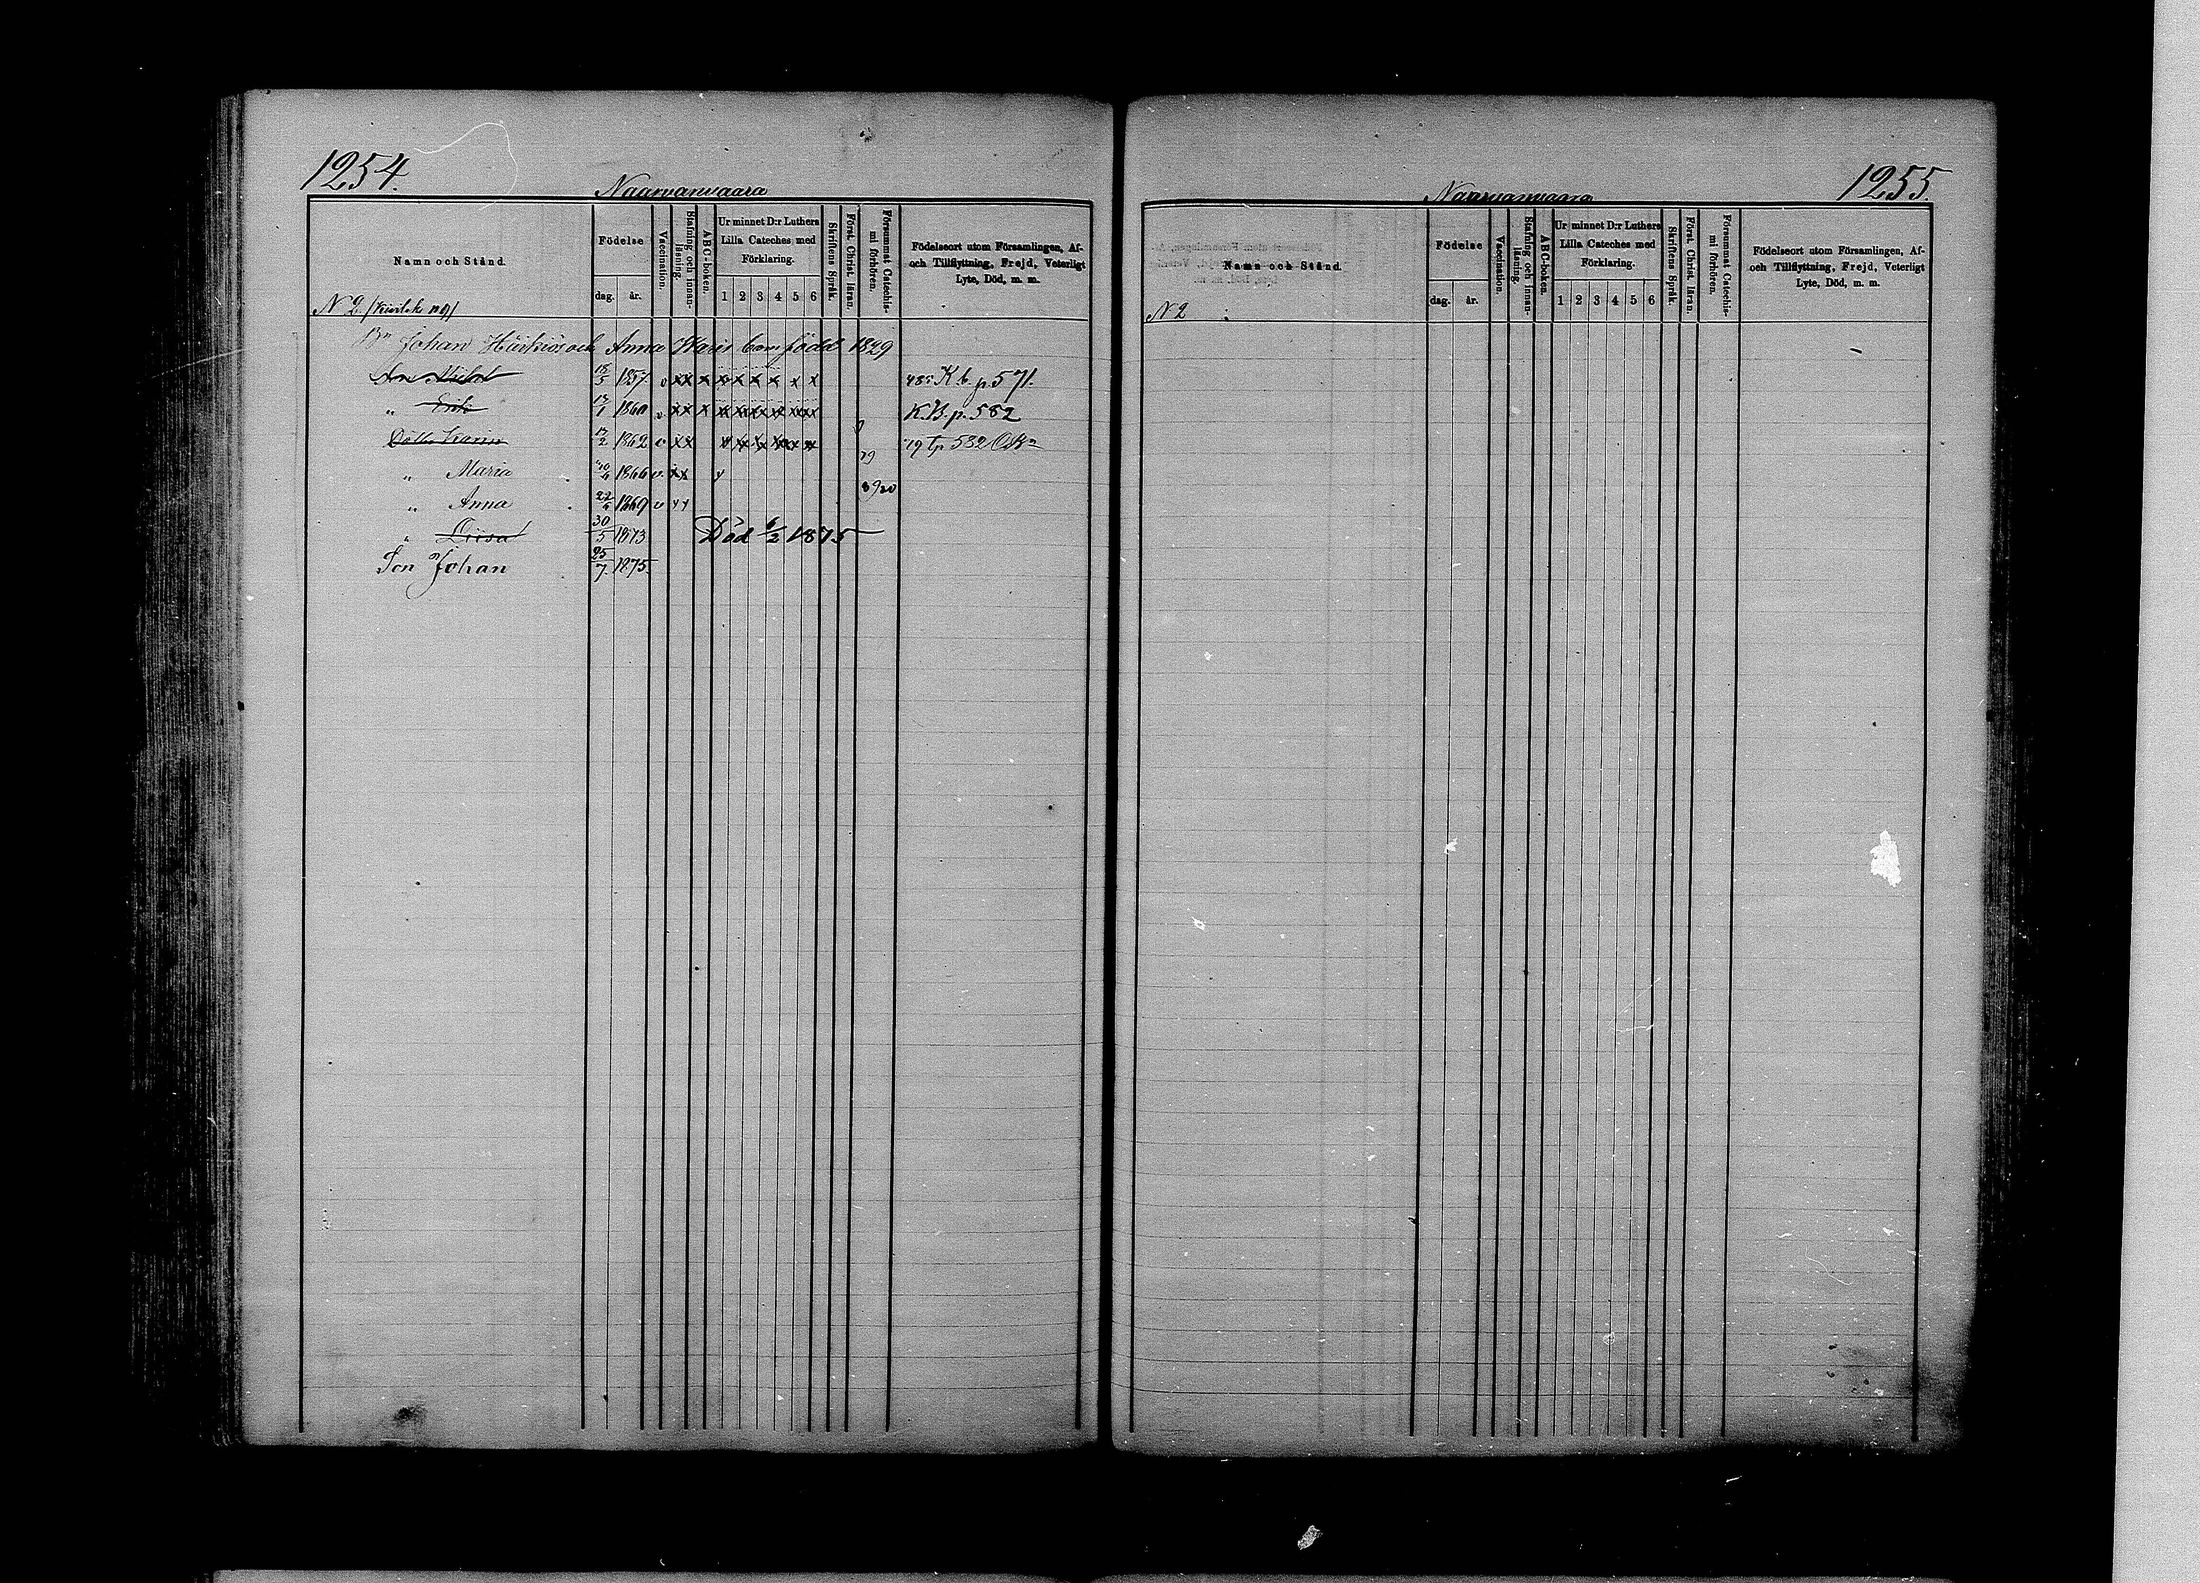 1254.
Naarvanvaara
Namn och Stånd.
Födelse
dag. år.
Vaccination.
Stafning och innan-läsning.
ABC-boken.
Ur minnet D:r Luthers Lilla Cateches med Förklaring.
1 2 3 4 5 6
Skriftens Språk.
Först. Christ. läran.
Försummat Catechis-mi förhören.
Födelseort utom Församlingen, Af- och Tillflyttning, Frejd, Veterligt Lyte, Död, m. m.
N 2
Johan och Anna barn född 1829
1857 v x x x x x x x x x K. b. p. 571.
" 1860 v K.B. p. 582
1862 v 79 582
" Maria 1866 v x x 79
" Anna 1869 v
" Liisa 30/5 1873 Död 6/2 1875
Son Johan 25/7 1875.
1255.
Naarvanvaara
Namn och Stånd.
Födelse
dag. år.
Vaccination.
Stafning och innan-läsning.
ABC-boken.
Ur minnet D:r Luthers Lilla Cateches med Förklaring.
1 2 3 4 5 6
Skriftens Språk.
Först. Christ. läran.
Försummat Catechis-mi förhören.
Födelseort utom Församlingen, Af- och Tillflyttning, Frejd, Veterligt Lyte, Död, m. m.
N 2